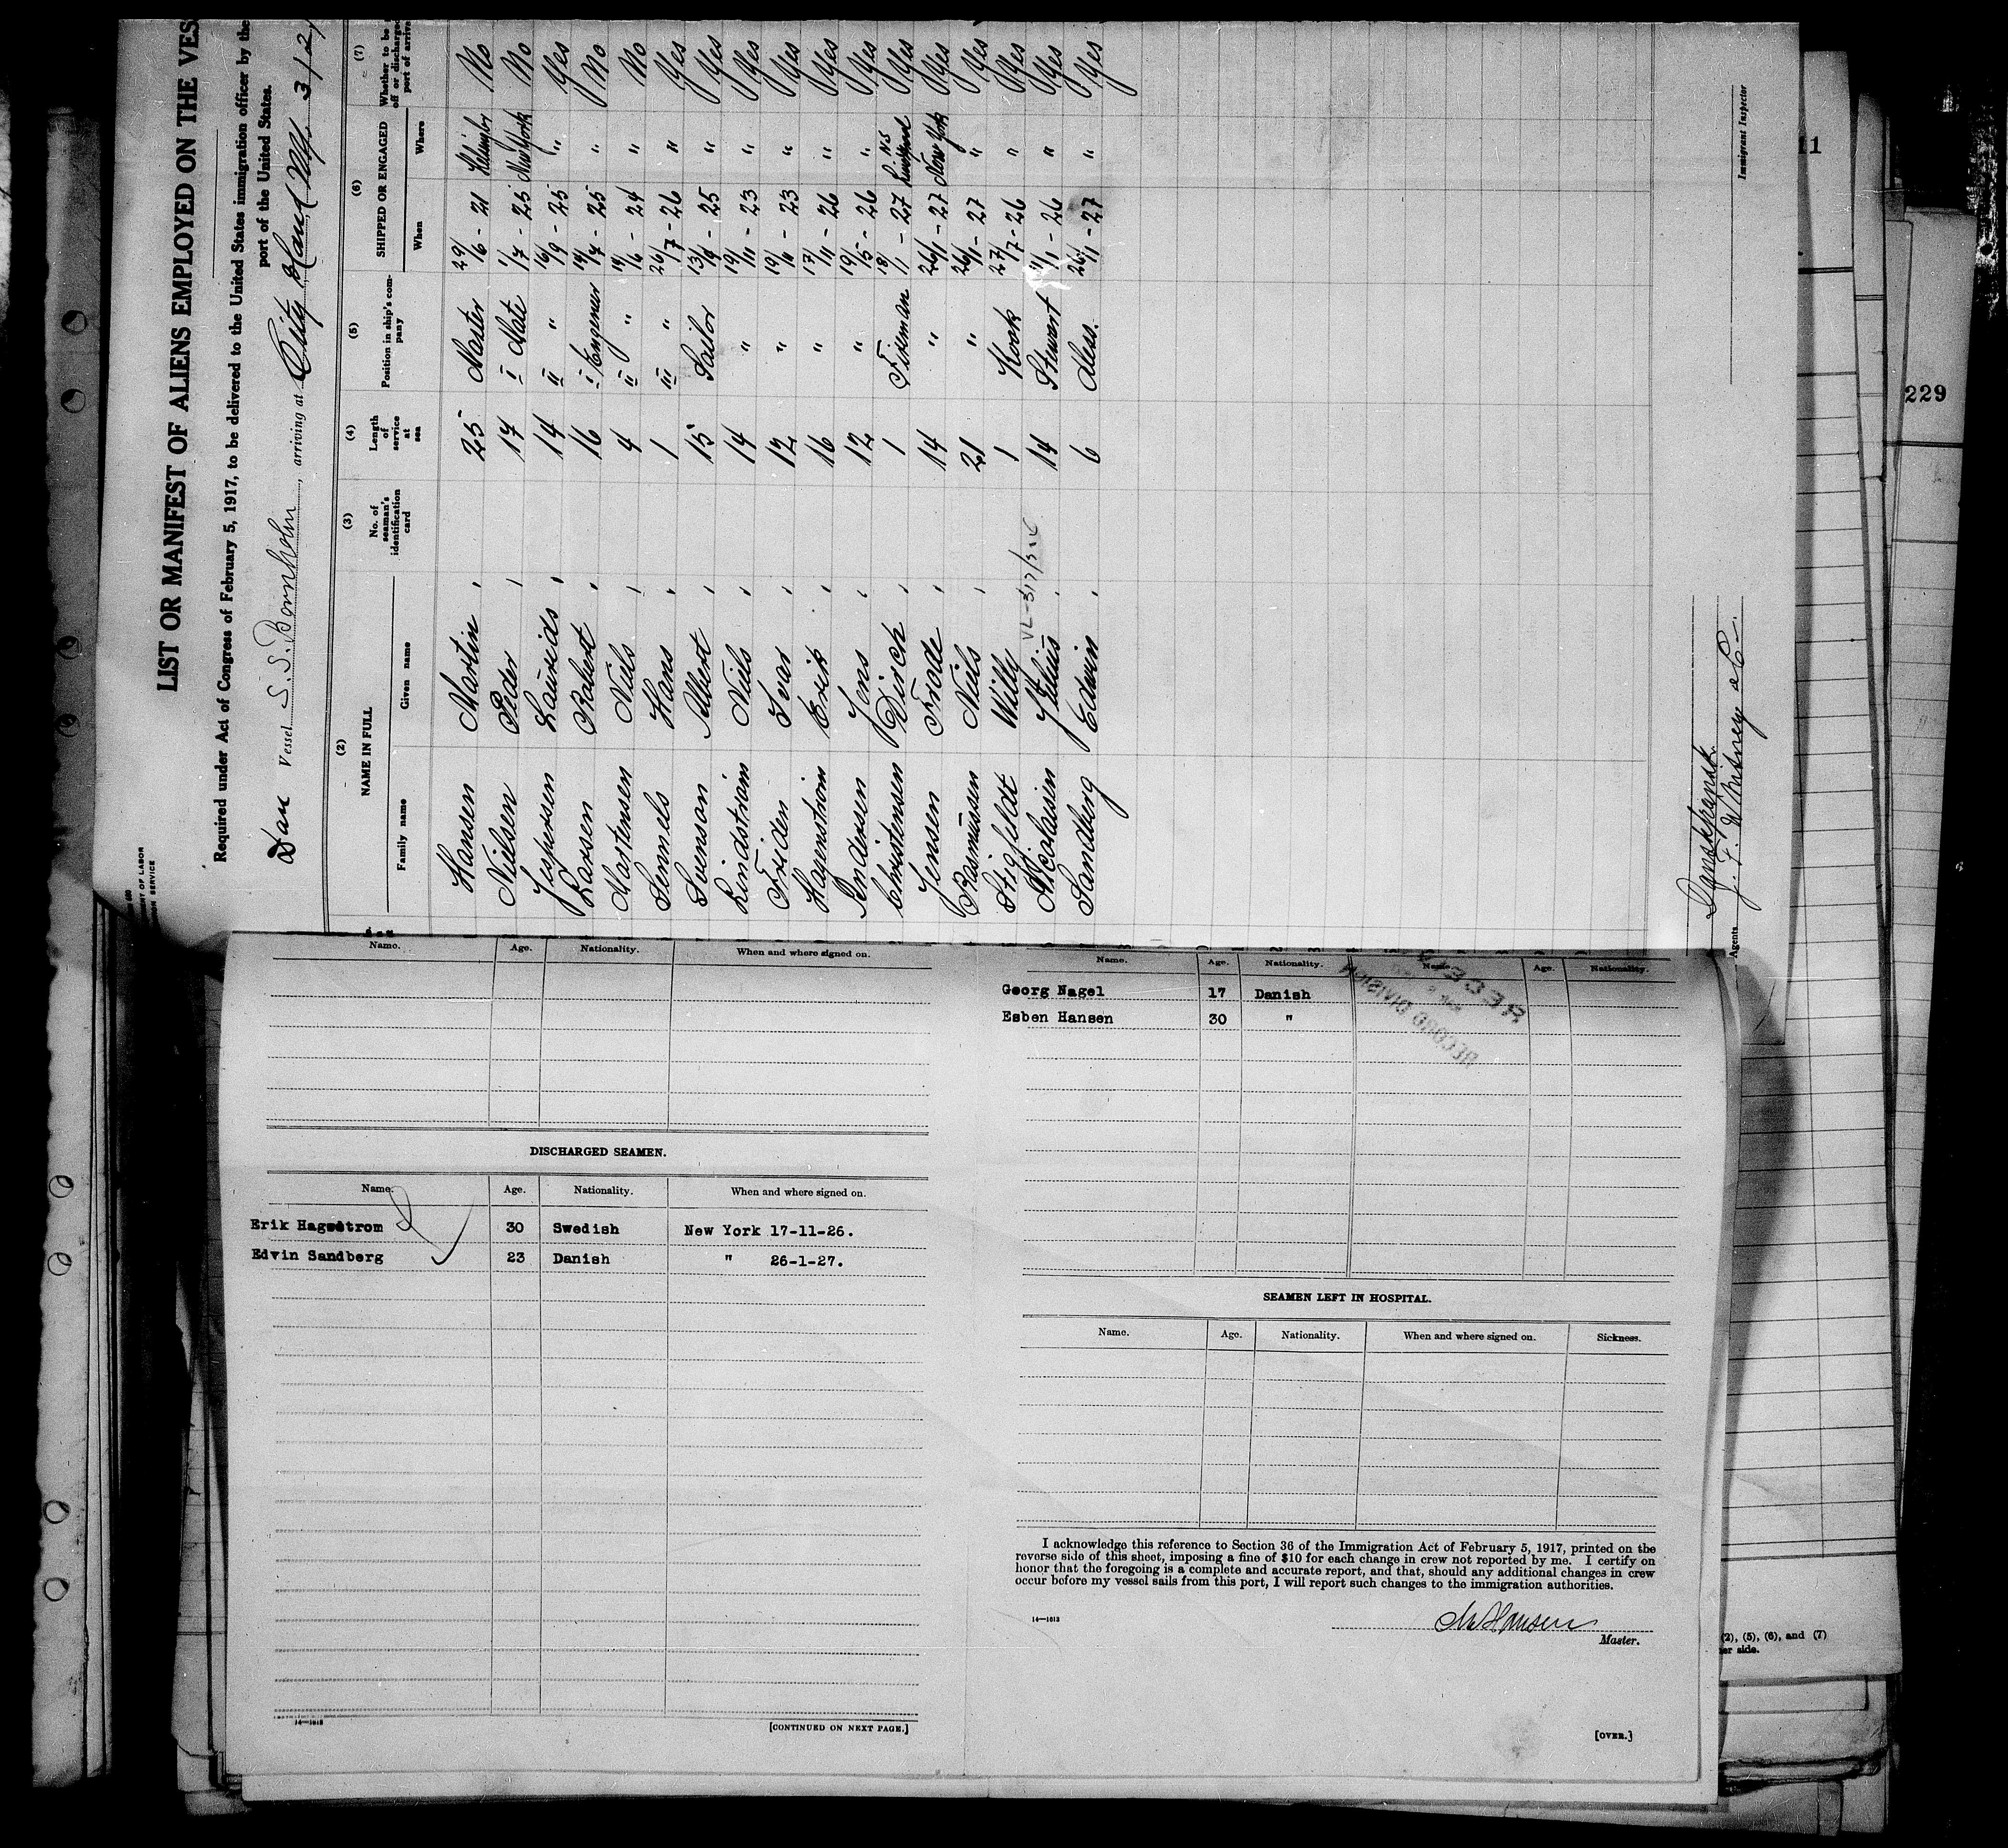 LIST OR MANIFEST OF ALIENS EMPLOYED ON THE VES
Required under Act of Congress of February 5, 1917, to be delivered to the United States immigration officer by the
port of the United States.
Dan Vessel S.S. Bornholm, arriving at City
(2) (3) (4) (5) (6) (7)
NAME IN FULL No. of seaman's identification card Length of service at sea Position in ship's company SHIPPED OR ENGAGED Whether to be
off or discharged
port of arriva
Family name Given name When Where
Hansen Martin " 25 Master 29/6 - 21 No
Nielsen Peder " 17 I Mate 1/7 - 25 New York No
Jespersen Laurids " 14 II " 16/9 - 25 " Yes
Larsen Robert " 16 I Engeneer - 25 " No
Mortensen Niels " 4 II " - 24 " No
Hans " 1 III " 26/7 - 26 " Yes
Svenson Albert " 15 Sailor - 25 " Yes
Lindström Niels " 14 " 19/11 - 23 " Yes
Friden Ivar " 12 " 19/11 - 23 " Yes
Hagenström Erik " 16 " 17/11 - 26 " Yes
Pendersen Jens " 12 " 19/5 - 26 " Yes
Christensen Dirich " 1 Fireman 18/1 - 27 Yes
Jensen Frode " 14 " 26/1 - 27 New York Yes
Rasmussen Niels " 21 " 26/1 - 27 " Yes
Stigfeldt Willy 1 Kook 27/7 - 26 " Yes
Nicolaisen Julius " 14 Stewart - 26 " Yes
Sandberg Edwin " 6 Mess. 26/1 - 27 " Yes
Agents
J. F. Whitney & Co.
Immigrant Inspector
Name. Age. Nationality. When and where signed on.
DISCHARGED SEAMEN.
Name. Age. Nationality. When and where signed on.
Erik Hagestrom 30 Swedish New York 17-11-26.
Edvin Sandberg 23 Danish " 26-1-27.
14—1613
[CONTINUED ON NEXT PAGE.]
Name. Age. Nationality. Name. Age. Nationality.
Georg Nagel 17 Danish
Esben Hansen 30 "
RECORD DIVISION
SEAMEN LEFT IN HOSPITAL.
Name. Age. Nationality. When and where signed on. Sickness.
I acknowledge this reference to Section 36 of the Immigration Act of February 5, 1917, printed on the
reverse side of this sheet, imposing a fine of $10 for each change in crew not reported by me. I certify on
honor that the foregoing is a complete and accurate report, and that, should any additional changes in crew
occur before my vessel sails from this port, I will report such changes to the immigration authorities.
14—1613
M Hansen
Master.
[OVER.]
11
229
(2), (5), (6), and (7)
er side.